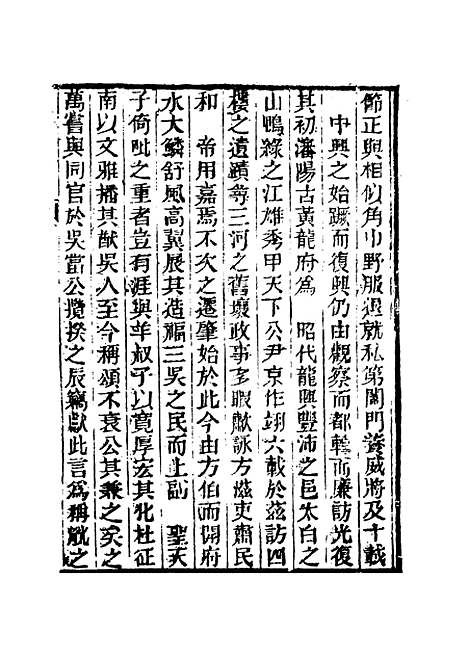 節正與相似角巾野服退就私第闔門養威將及十載
中興之始蹶而復興仍由觀察而都轉而廉訪光復
其初瀋陽古黃龍府爲　昭代龍興豐沛之邑太白之
山鴨綠之江雄秀甲天下公尹京作翊六載於茲訪四
樓之遺蹟尋三河之舊壤政事多暇歗詠方滋吏肅民
和　帝用嘉焉不次之遷肇始於此今由方伯而開府
水大鱗舒風高翼展其造福三吳之民而上副　聖天
子倚毗之重者豈有涯與羊叔子以寬厚宏其化杜征
南以文雅播其猷吳人至今稱頌不衰公其兼之矣之
萬嘗與同官於吳當公攬揆之辰竊獻此言爲稱觥之